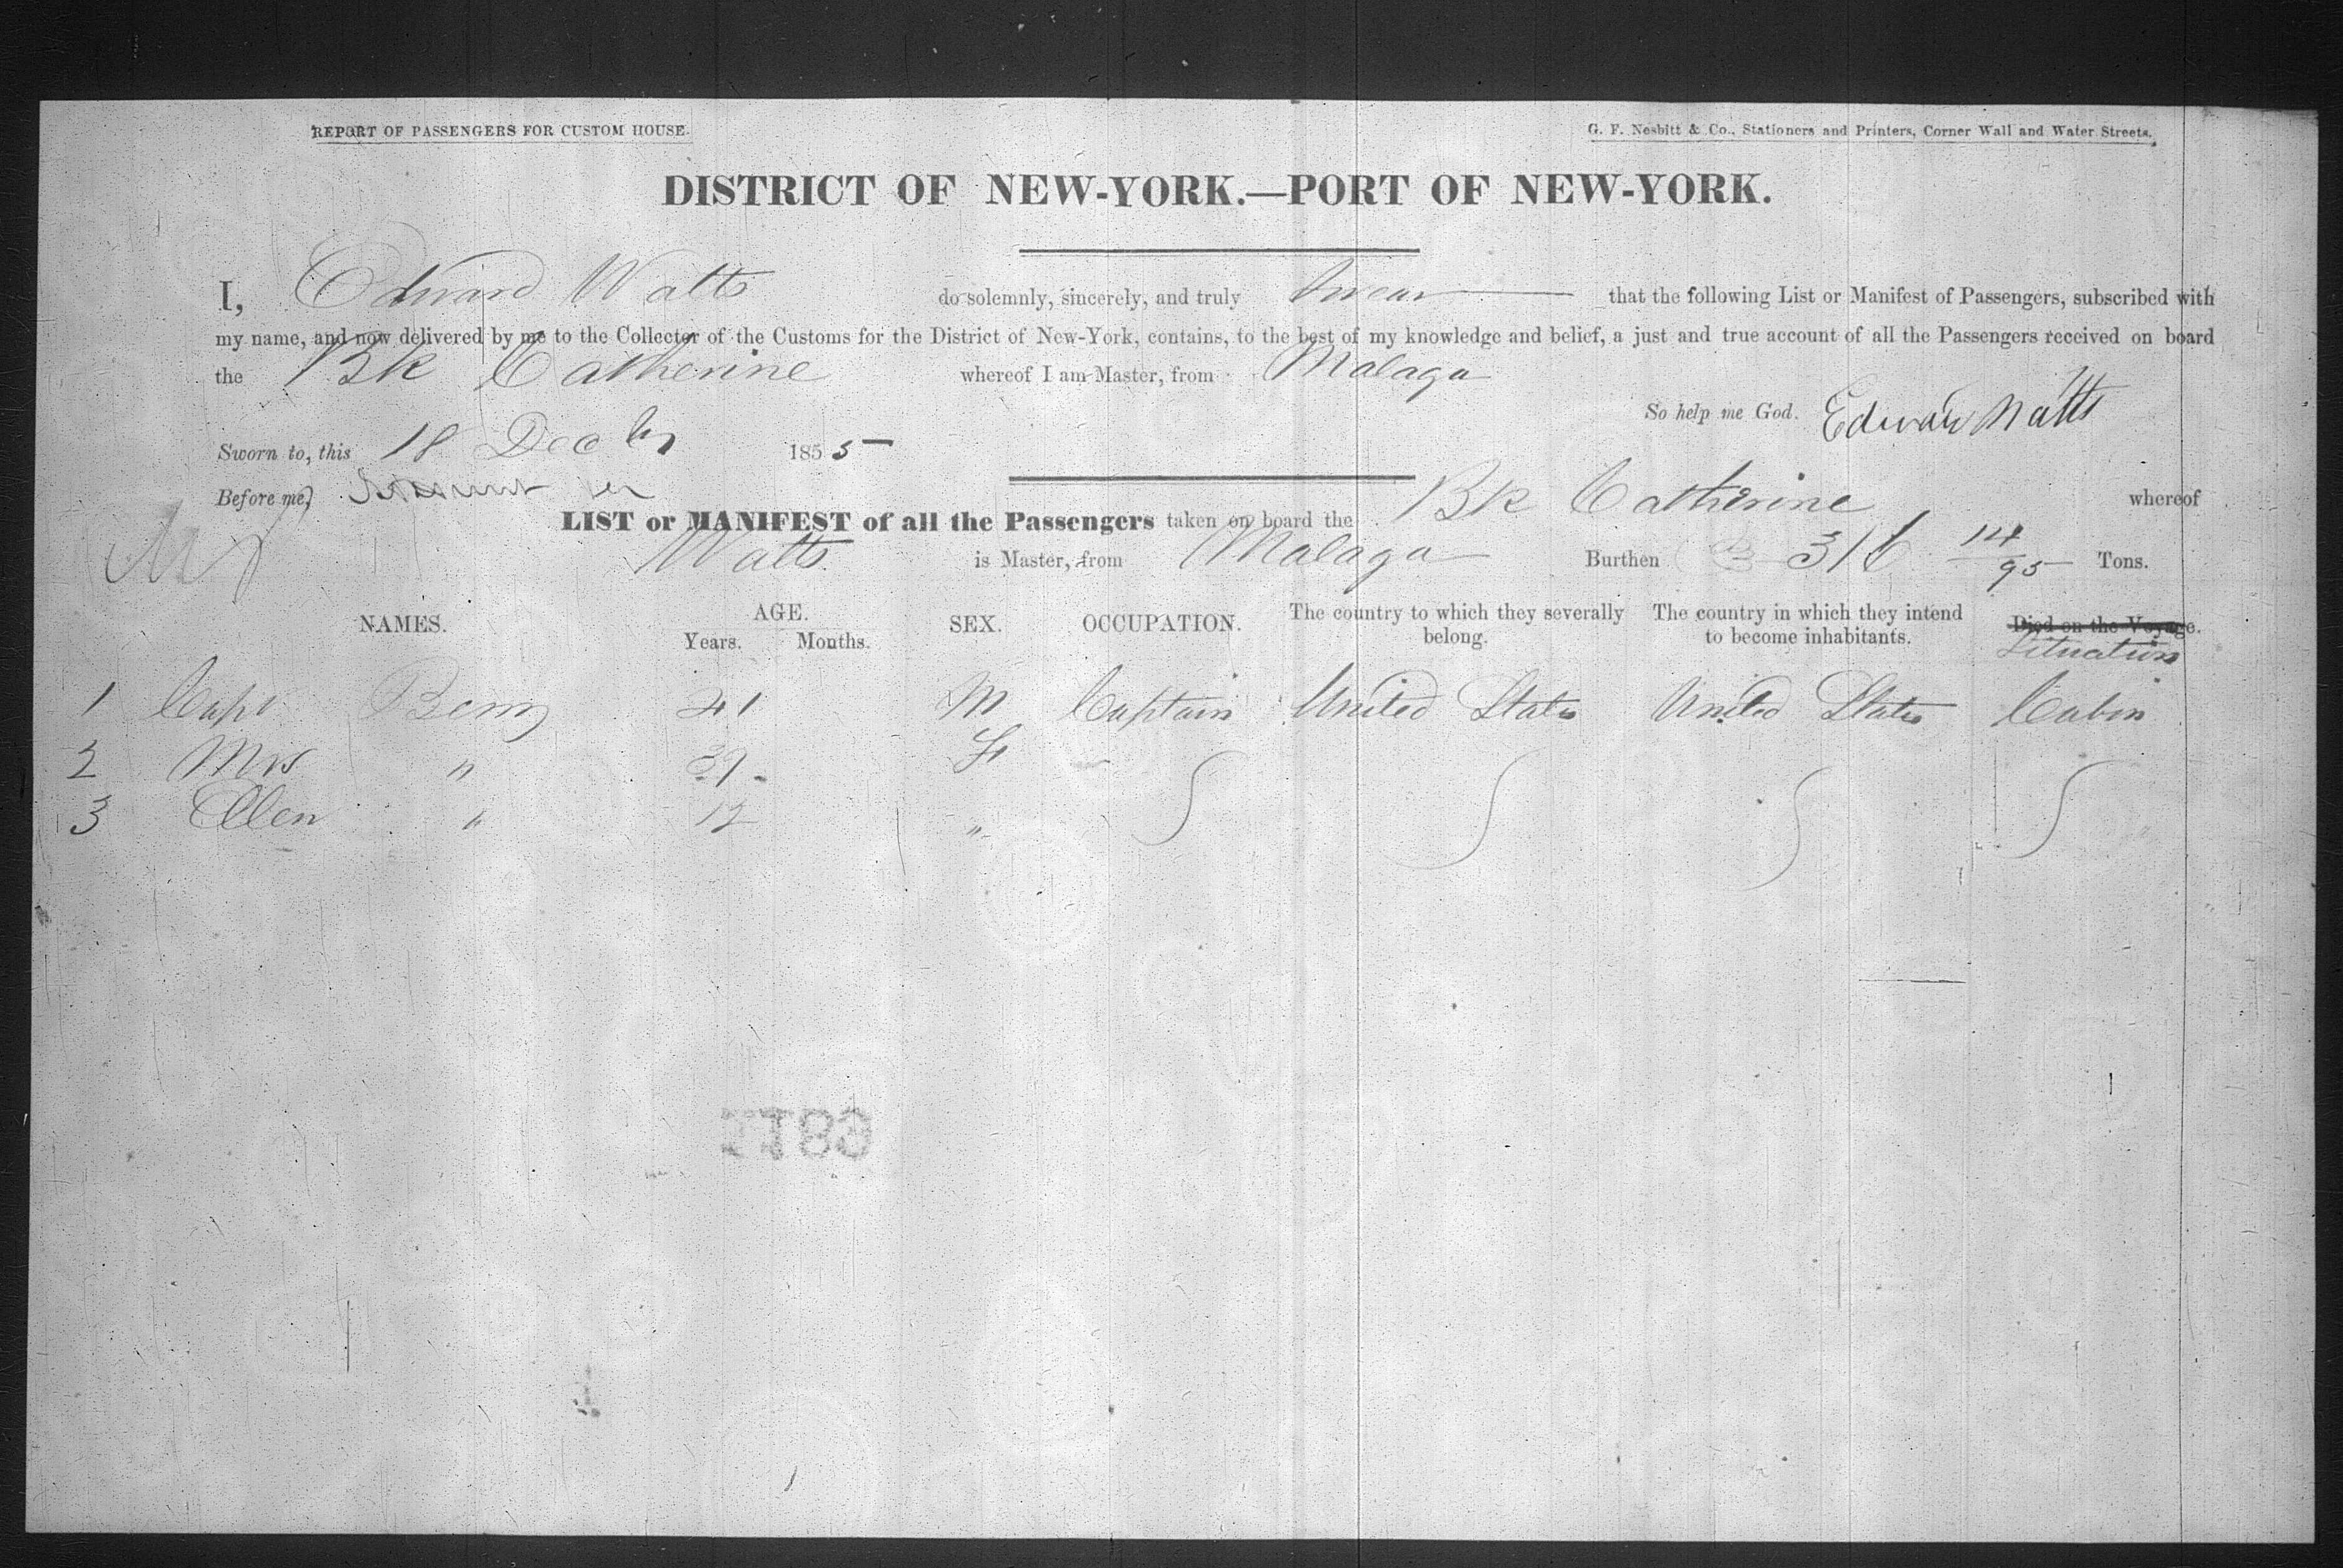 REPORT OF PASSENGERS FOR CUSTOM HOUSE.
G. F. Nesbitt & Co., Stationers and Printers, Corner Wall and Water Streets.
DISTRICT OF NEW-YORK.—PORT OF NEW-YORK.
I, Edward Watts do solemnly, sincerely, and truly swear that the following List or Manifest of Passengers, subscribed with
my name, and now delivered by me to the Collector of the Customs for the District of New-York, contains, to the best of my knowledge and belief, a just and true account of all the Passengers received on board
the Bk Catherine whereof I am Master, from Malaga
So help me God. Edward Watts
Sworn to, this 18 Decbr 1855
Before me,
LIST or MANIFEST of all the Passengers taken on board the Bk Catherine whereof
Watts is Master, from Malaga Burthen 316 14/95 Tons.
NAMES. AGE. Years. Months. SEX. OCCUPATION. The country to which they severally belong. The country in which they intend to become inhabitants. Died on the Voyage. Situation
1 Capt Berry 41 M Captain United States United States Cabin
2 Mrs " 39 F
3 Ellen " 12 "